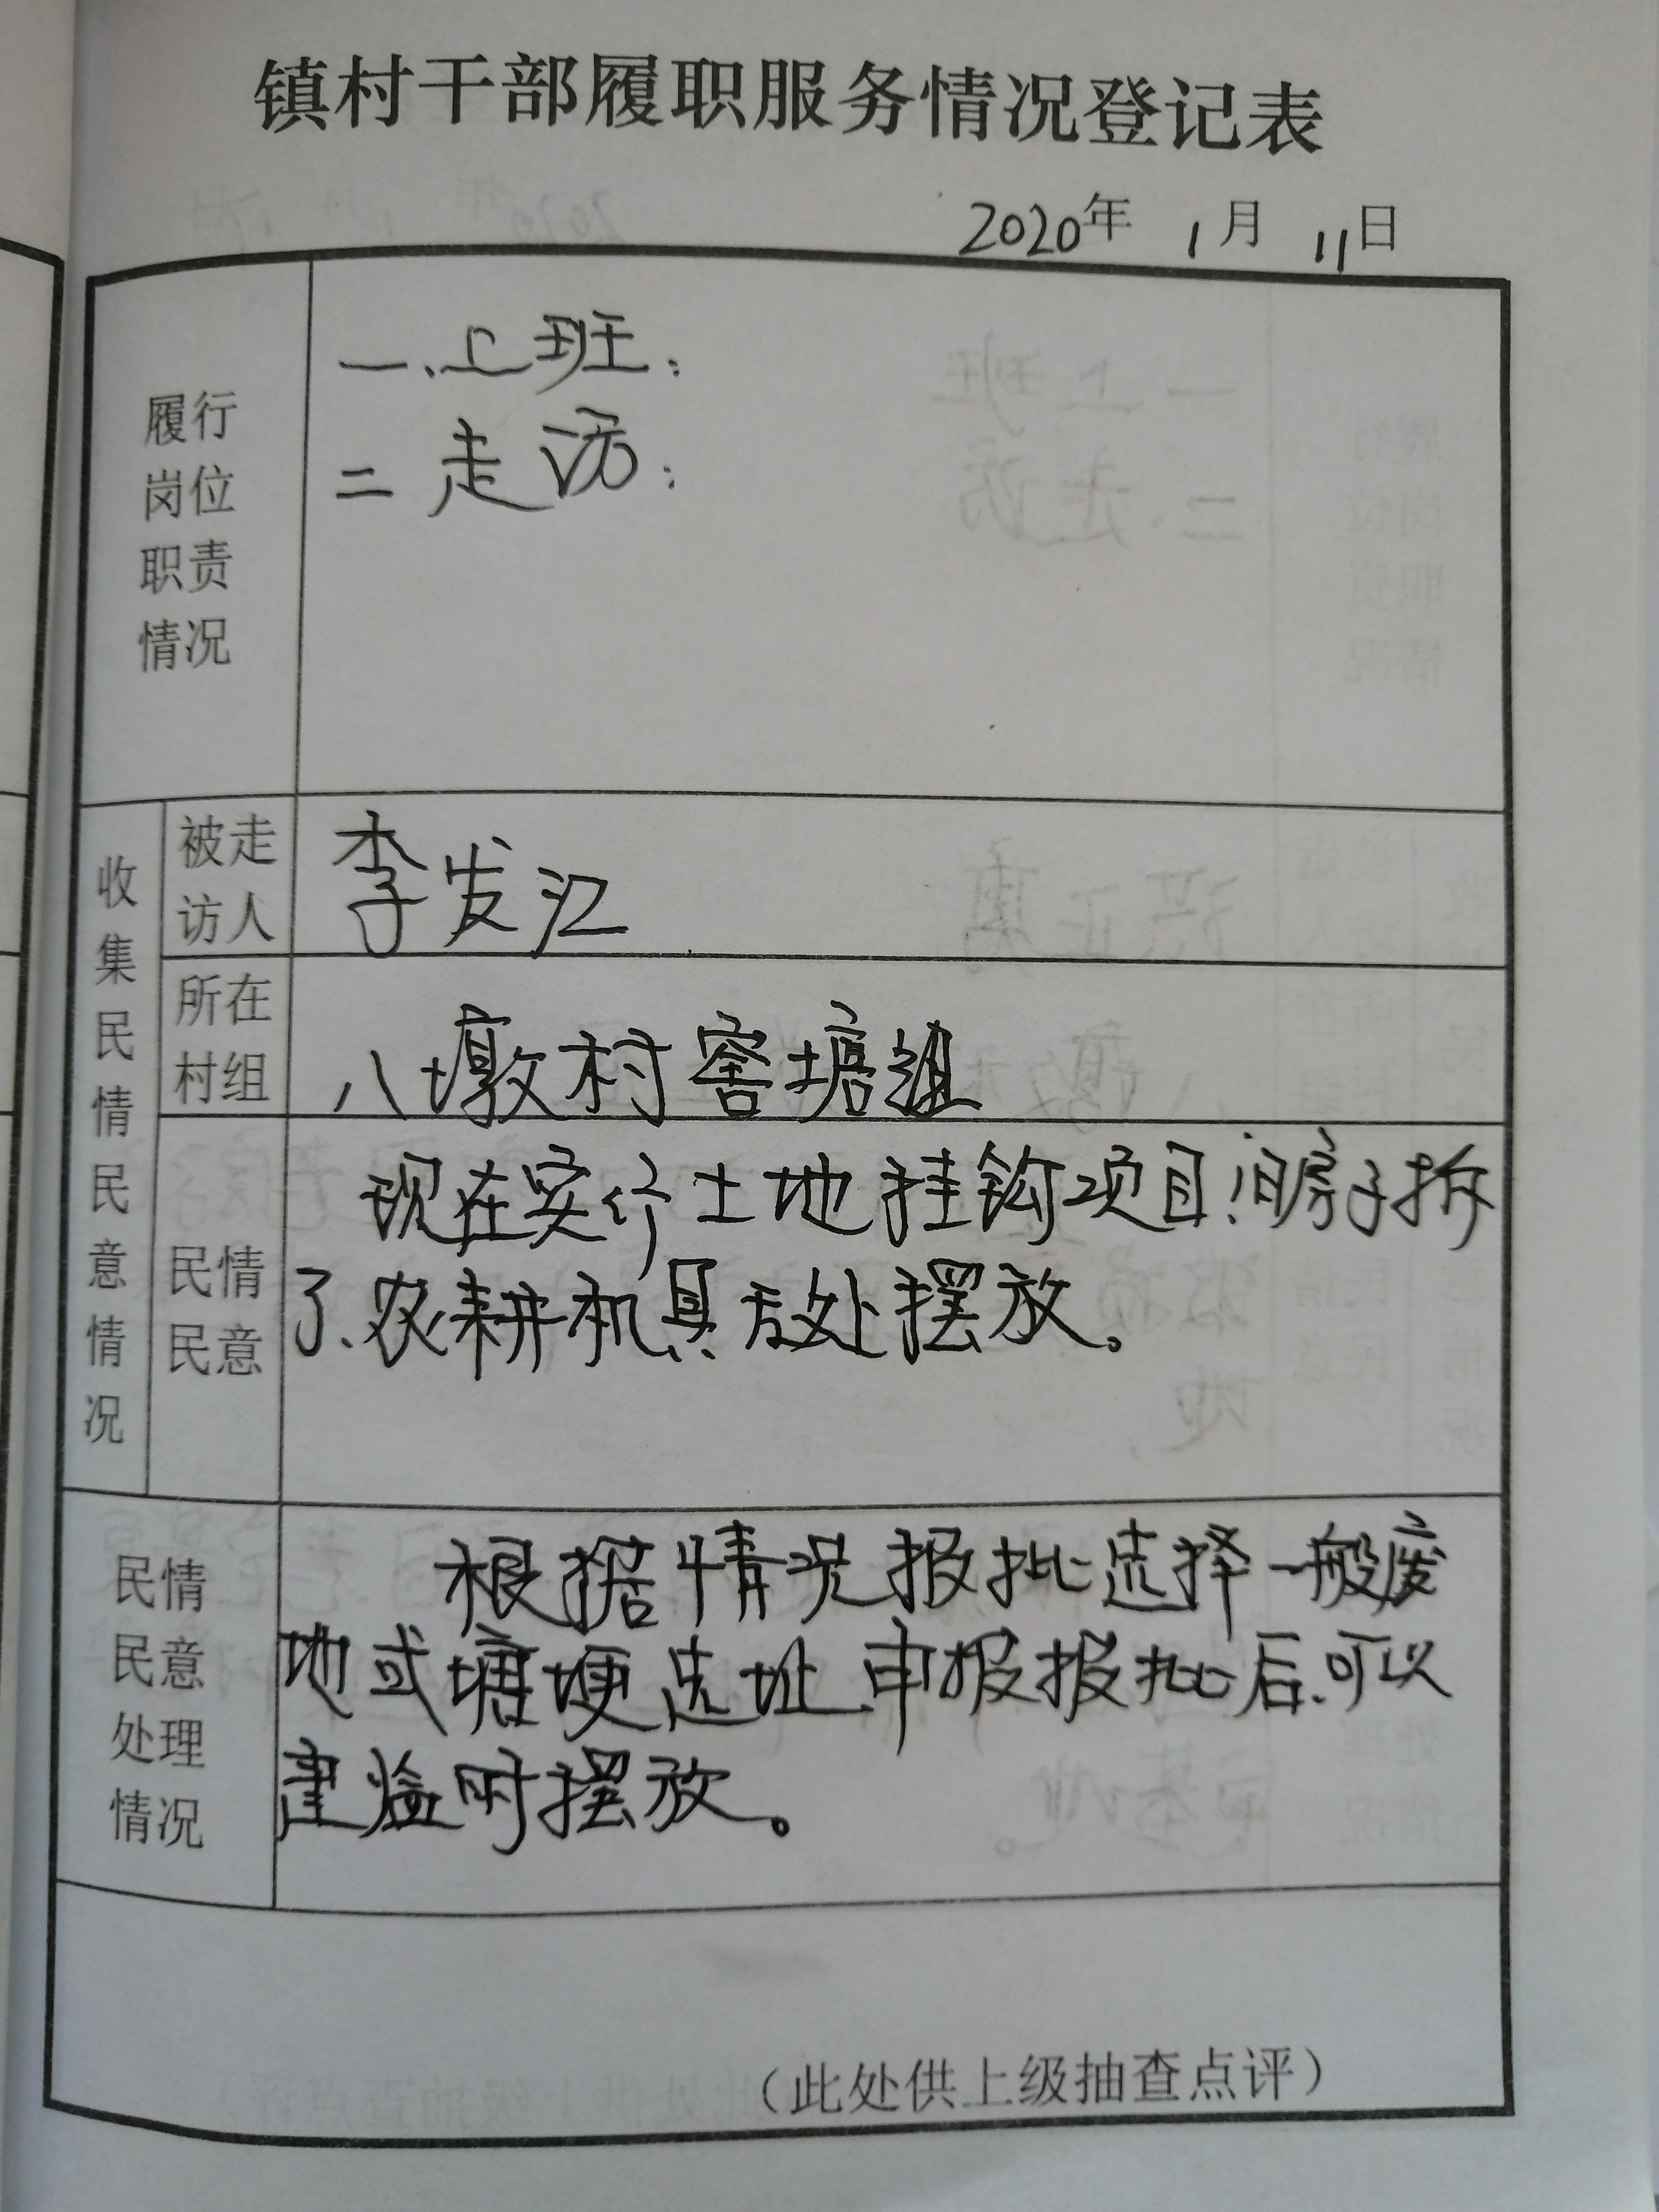 镇村干部履职服务情况登记表
2020年 1月 11日
履行
岗位
职责
情况
一、上班：
二 走访：
收集民情民意情况
被走
访人
李发江
所在
村组
八墩村窖塘组
民情
民意
现在实行土地挂钩项目，旧房子拆
了、农耕机具无处摆放。
民情
民意
处理
情况
根据情况报批选择一般废
地或塘埂选址、申报报批后、可以
建临时摆放。
（此处供上级抽查点评）